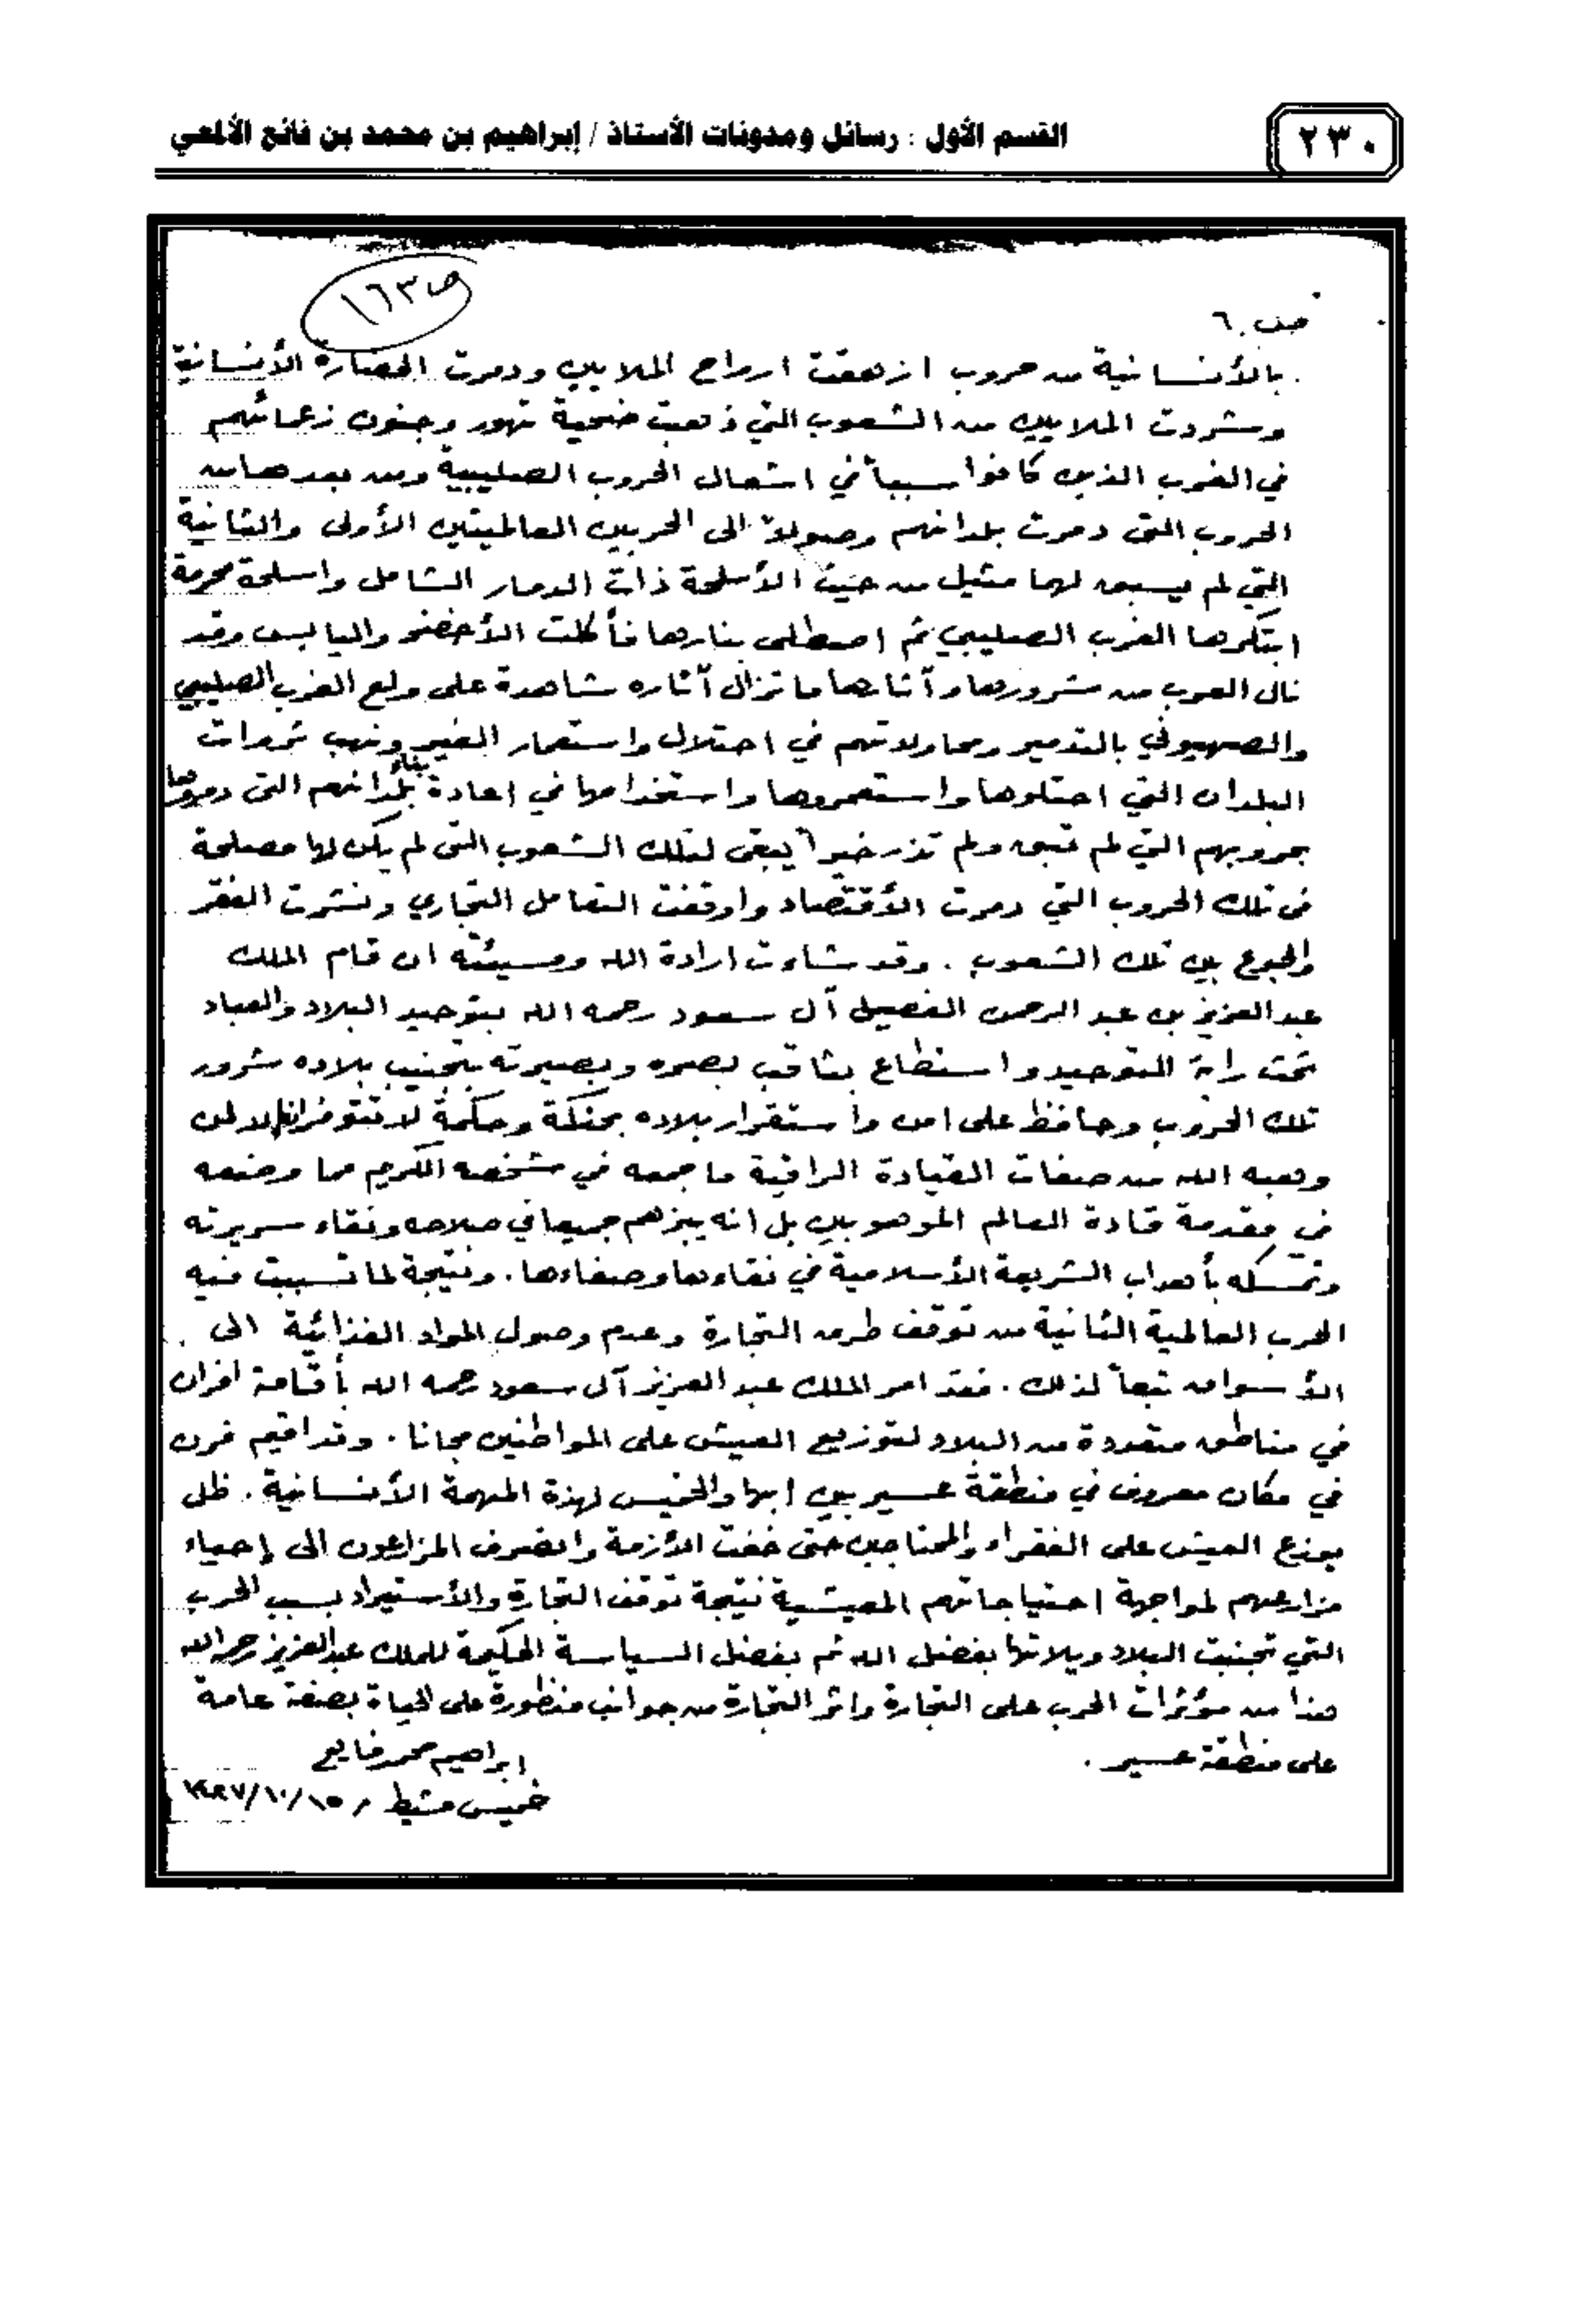 ٢٣٠
القسم الأول : رسائل ومدونات الأستاذ / إبراهيم بن محمد بن فائع الألمعي
ص ١٦٣
ص ٦
بالأنسانية من حروب ازهقت ارواح الملايين ودمرت الحضارة الأنسانية
وشردت الملايين من الشعوب التي ذهبت ضحية تهور وجنون زعمائهم
في الغرب الذين كانوا سبباً في اشعال الحروب الصليبية ومن بعدها من
الحروب التي دمرت بلدانهم وصولاً الى الحربين العالميتين الأولى والثانية
التي لم يسبق لها مثيل من حيث الأسلحة ذات الدمار الشامل واسلحة محرمة
ابتكرها الغرب الصليبي ثم اصطلى بنارها فأكلت الأخضر واليابس وقد
نال العرب من شرورها وآثارها ما تزال آثاره شاهدة على ولع الغرب الصليبي
والصهيوني بالتدمير ومحاولاتهم في احتلال واستعمار الغير ونهب ثروات
البلدان التي احتلوها واستعمروها واستخدامها في اعادة بناء بلدانهم التي دمروها
بحروبهم التي لم تبق ولم تذر خيراً يبقى لتلك الشعوب التي لم يكن لها مصلحة
في تلك الحروب التي دمرت الأقتصاد واوقفت التعامل التجاري ونشرت الفقر
والجوع بين تلك الشعوب . وقد شاءت ارادة الله ومسيئته ان قام الملك
عبد العزيز بن عبد الرحمن الفصيل آل سعود رحمه الله بتوحيد البلاد والعباد
تحت راية التوحيد واستطاع بثاقب بصره وبصيرته بتجنيب بلاده شرور
تلك الحروب وحافظ على امن واستقرار بلاده بحنكة وحكمة لا تتوفر الا لمن
وهبه الله من صفات القيادة الراقية ما جمعه في شخصه الكريم مما وضعه
في مقدمة قادة العالم الموهوبين بل انه يبزهم جميعا في صلاحه ونقاء سريرته
وتمسكه بأهداب الشريعة الأسلامية في نقاءها وصفاءها . ونتيجة لما تسببت فيه
الحرب العالمية الثانية من توقف طرق التجارة وعدم وصول المواد الغذائية الى
الأسواق تبعاً لذلك . فقد امر الملك عبد العزيز آل سعود رحمه الله بأقامة افران
في مناطق متعددة من البلاد لتوزيع العيش على المواطنين مجانا . وقد اقيم فرن
في مكان معروف في منطقة عسير بين ابها والخميس لهذة المهمة الأنسانية . ظل
يوزع العيش على الفقراء والمحتاجين حتى خفت الأزمة وانصرف المزارعون الى إحياء
مزارعهم لمواجهة احتياجاتهم المعيشية نتيجة توقف التجارة والأستيراد بسبب الحرب
التي تجنبت البلاد ويلاتها بفضل الله ثم بفضل السياسة الحكيمة للملك عبد العزيز رحمه الله
هذا من مؤثرات الحرب على التجارة واثر التجارة من جوانب منظورة على الحياة بصفة عامة
على منطقة عسير .
ابراهيم محمد فايع
خميس مشيط ١٥/١٠/